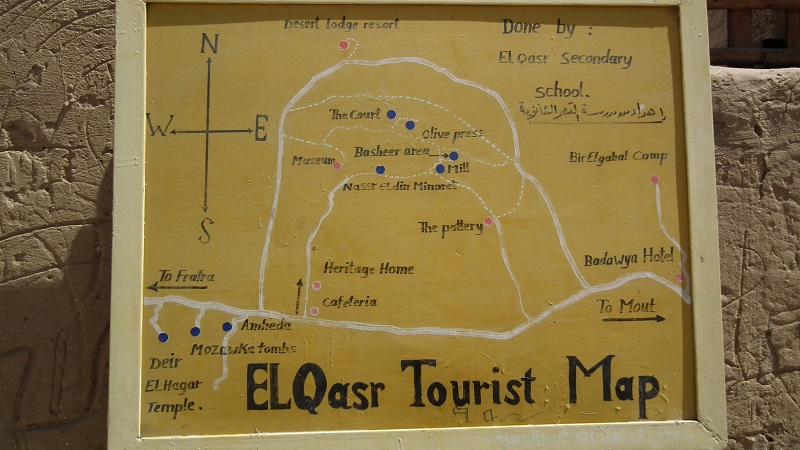 Desert lodge resort
Done by :
EL Qasr Secondary
school.
إهداء من مدرسة القصر الثانوية
N
W
E
S
The Court
Olive press
Basheer area
Museum
Mill
Nassr Eldin Minaret
Bir Elgabal Camp
The pattery
Badawya Hotel
Heritage Home
Cafeteria
To Frafra
To Mout
Amheda
Mozawka tombs
Deir
El Hagar
Temple.
ELQasr Tourist Map